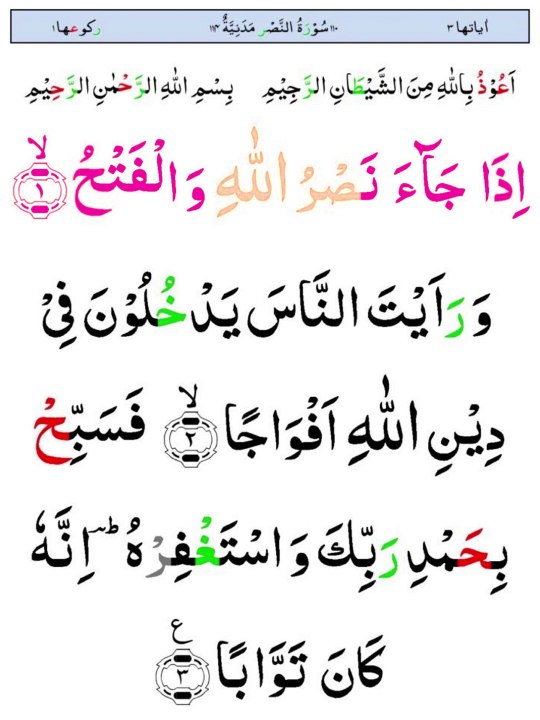 اٰیاتها ۳ ۱۱۰ سُوْرَةُ النَّصْرِ مَدَنِیَّةٌ ۱۱۴ رکوعها ۱
اَعُوْذُ بِاللّٰهِ مِنَ الشَّیْطَانِ الرَّجِیْمِ بِسْمِ اللّٰهِ الرَّحْمٰنِ الرَّحِیْمِ
اِذَا جَآءَ نَصْرُ اللّٰهِ وَ الْفَتْحُ ۙ﴿۱﴾
وَ رَاَیْتَ النَّاسَ یَدْخُلُوْنَ فِیْ
دِیْنِ اللّٰهِ اَفْوَاجًا ۙ﴿۲﴾ فَسَبِّحْ
بِحَمْدِ رَبِّكَ وَ اسْتَغْفِرْهُ ؔؕ اِنَّهٗ
كَانَ تَوَّابًا ﴿۳﴾ ع